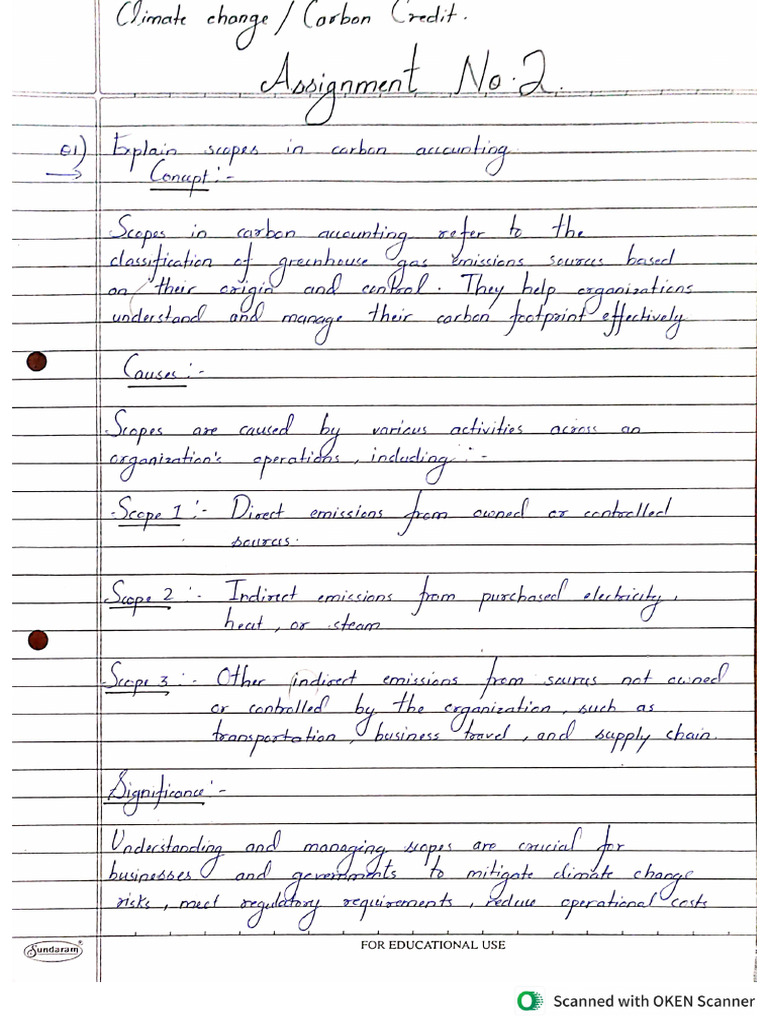 Climate change / Carbon Credit.
Assignment No. 2.
Q1) Explain scopes in carbon accounting
Concept :-
Scopes in carbon accounting refer to the
classification of greenhouse gas emissions sources based
on their origin and control. They help organizations
understand and manage their carbon footprint effectively
Causes :-
Scopes are caused by various activities across an
organization's operations, including :-
Scope 1 :- Direct emissions from owned or controlled
sources.
Scope 2 :- Indirect emissions from purchased electricity,
heat, or steam
Scope 3 :- Other indirect emissions from sources not owned
or controlled by the organization, such as
transportation, business travel, and supply chain.
Significance :-
Understanding and managing scopes are crucial for
businesses and governments to mitigate climate change
risks, meet regulatory requirements, reduce operational costs
Sundaram®
FOR EDUCATIONAL USE
Scanned with OKEN Scanner